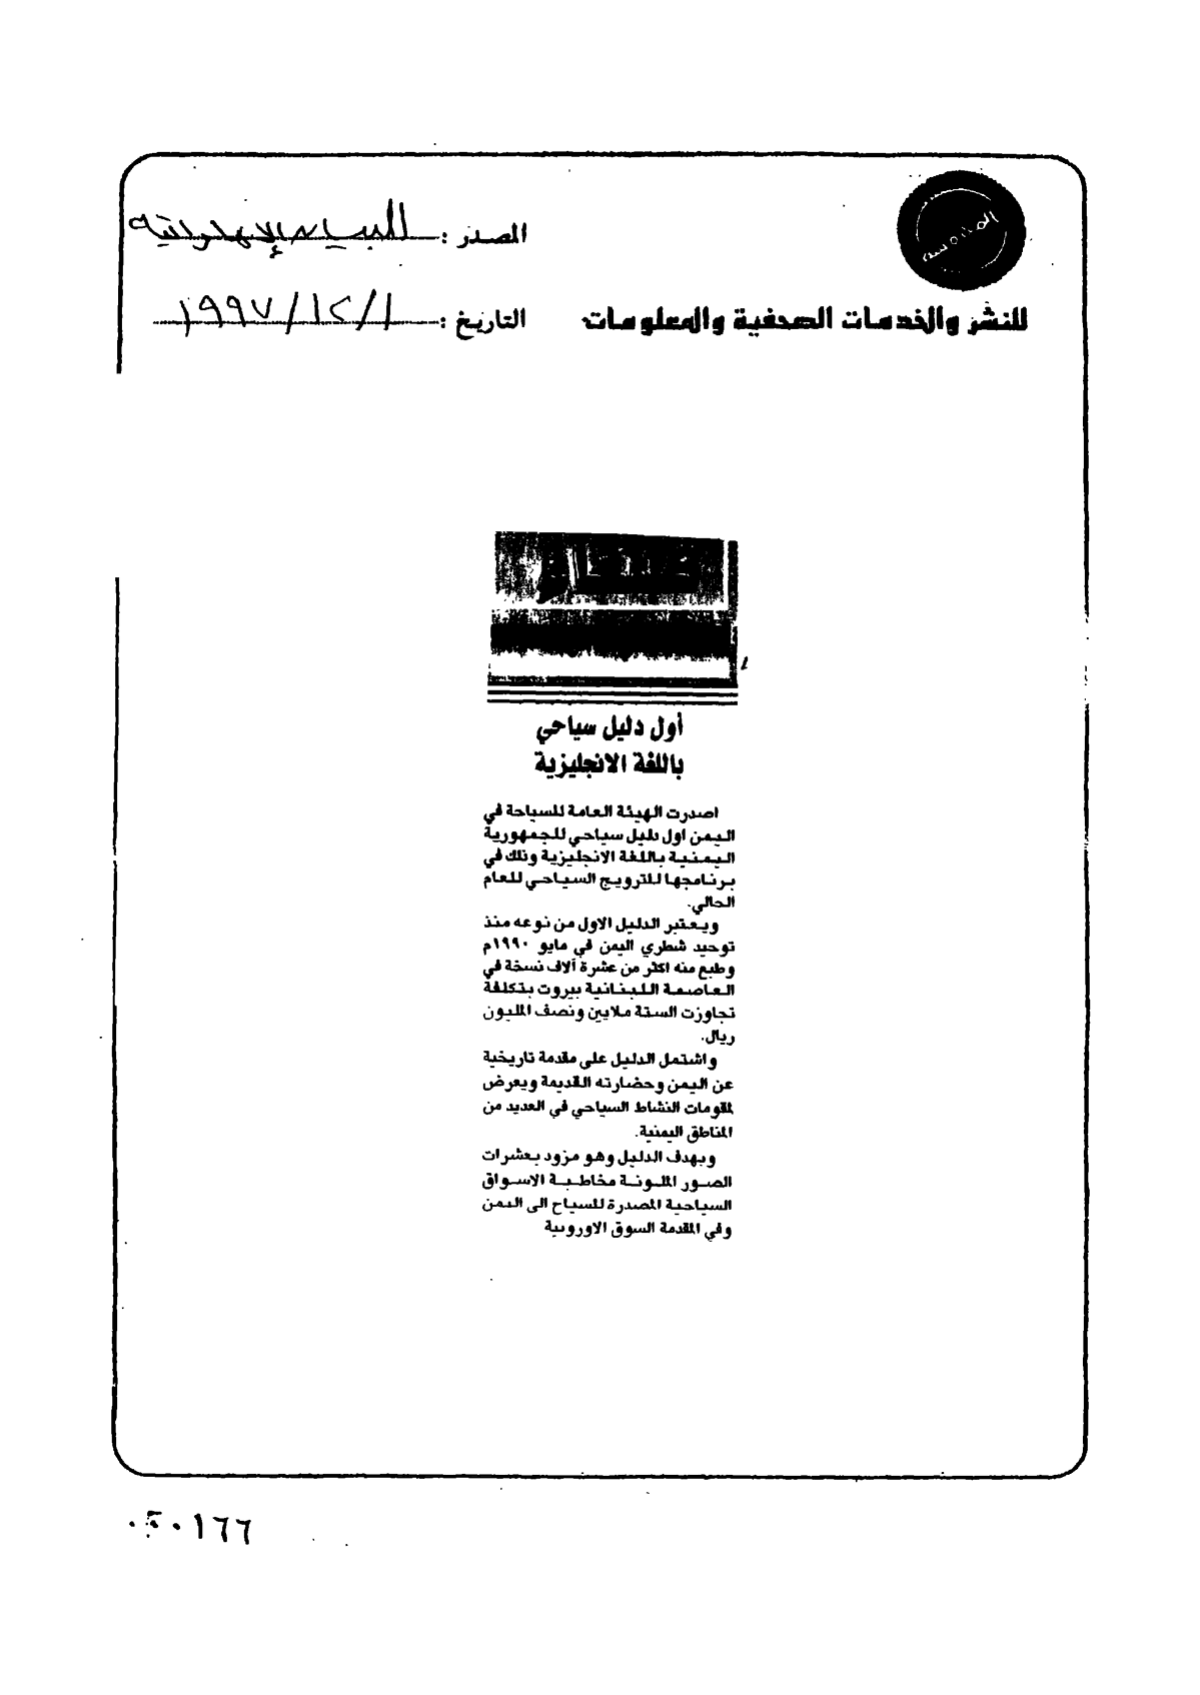 المصدر : البيان الإماراتية
للنشر والخدمات الصحفية والمعلومات
التاريخ : ١٩٩٧/١٢/١
أول دليل سياحي
باللغة الانجليزية
اصدرت الهيئة العامة للسياحة في
اليمن اول دليل سياحي للجمهورية
اليمنية باللغة الانجليزية وذلك في
برنامجها للترويج السياحي للعام
الحالي.
ويعتبر الدليل الاول من نوعه منذ
توحيد شطري اليمن في مايو ١٩٩٠م
وطبع منه اكثر من عشرة آلاف نسخة في
العاصمة اللبنانية بيروت بتكلفة
تجاوزت الستة ملايين ونصف المليون
ريال.
واشتمل الدليل على مقدمة تاريخية
عن اليمن وحضارته القديمة ويعرض
لمقومات النشاط السياحي في العديد من
المناطق اليمنية.
ويهدف الدليل وهو مزود بعشرات
الصور الملونة مخاطبة الاسواق
السياحية المصدرة للسياح الى اليمن
وفي المقدمة السوق الاوروبية